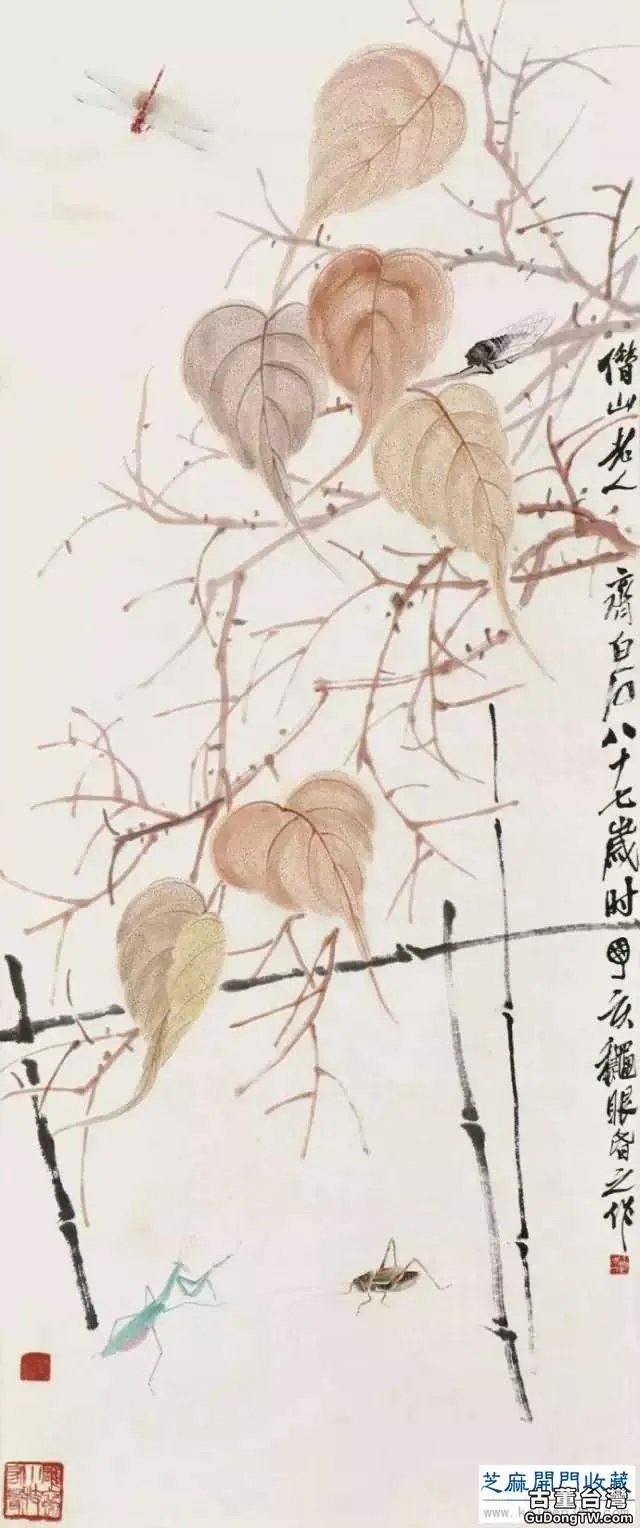 借山老人 齊白石八十七歲时丁亥龝眼昏之作
芝麻開門收藏
古董台灣
GuDongTW.com